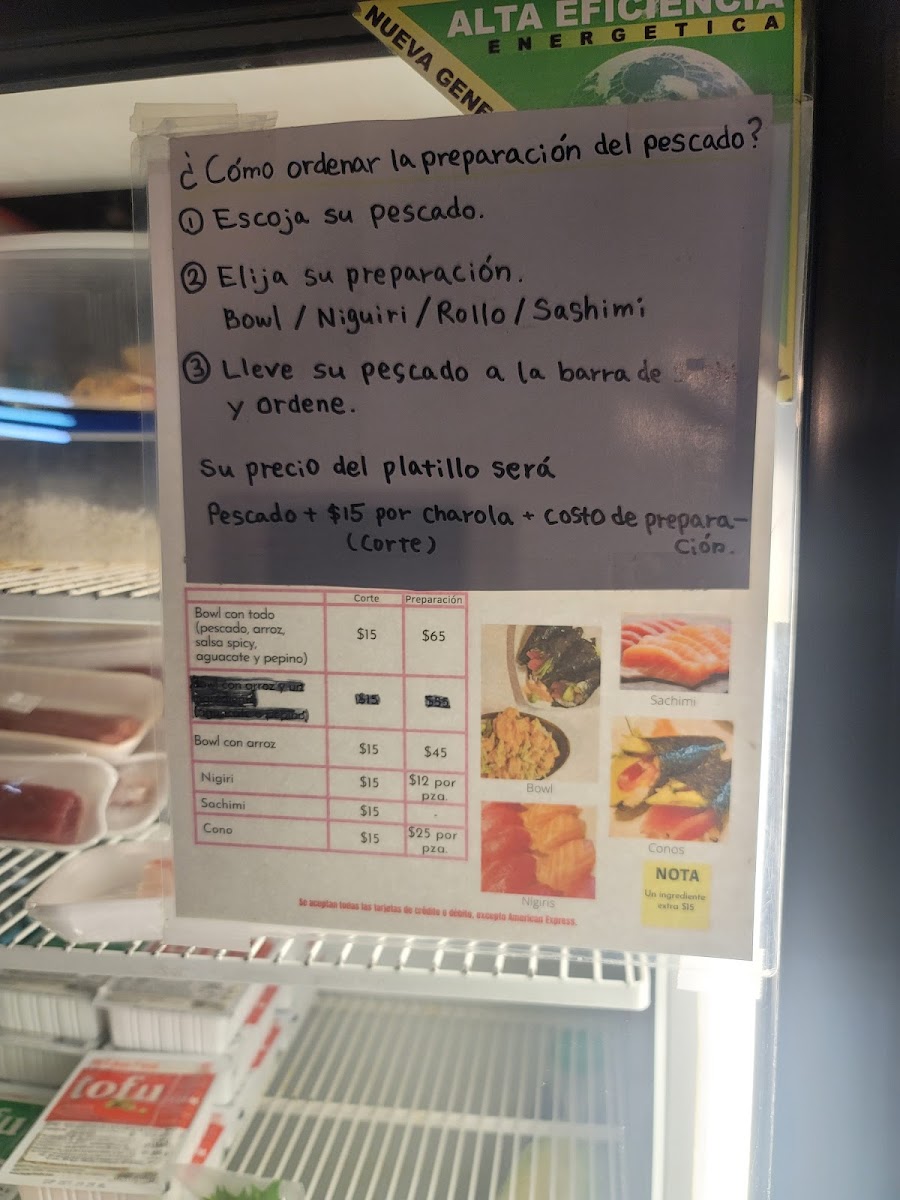 ALTA EFICIENCIA
ENERGETICA
NUEVA GENE
¿Cómo ordenar la preparación del pescado?
① Escoja su pescado.
② Elija su preparación.
Bowl / Niguiri / Rollo / Sashimi
③ Lleve su pescado a la barra de
y ordene.
Su precio del platillo será
Pescado + $15 por charola + costo de prepara-
(Corte) ción.
Corte Preparación
Bowl con todo
(pescado, arroz,
salsa spicy,
aguacate y pepino) $15 $65
Bowl con arroz $15 $45
Nigiri $15 $12 por
pza.
Sachimi $15 -
Cono $15 $25 por
pza.
Sachimi
Bowl
Conos
Nigiris
NOTA
Un ingrediente
extra $15
Se aceptan todas las tarjetas de crédito o débito, excepto American Express.
tofu